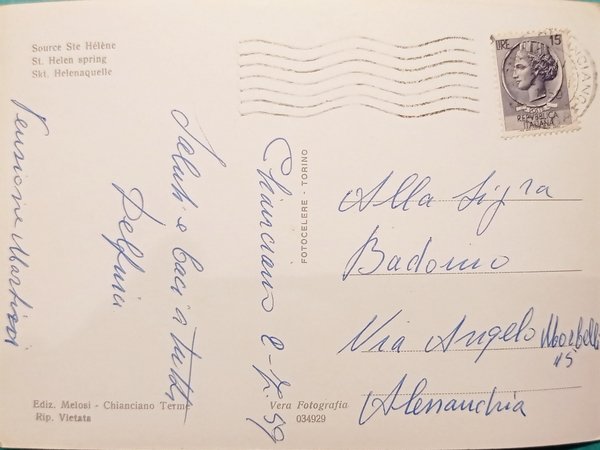 Source Ste Hélène
St. Helen spring
Skt. Helenaquelle
LIRE 15
REPVBBLICA
ITALIANA
Chianciano 2-7-59
Saluti e baci a tutti
Delfina
Pensione
FOTOCELERE - TORINO
Alla Sigra
Badoino
Via Angelo Morbelli
15
Alessandria
Ediz. Melosi - Chianciano Terme
Rip. Vietata
Vera Fotografia
034929